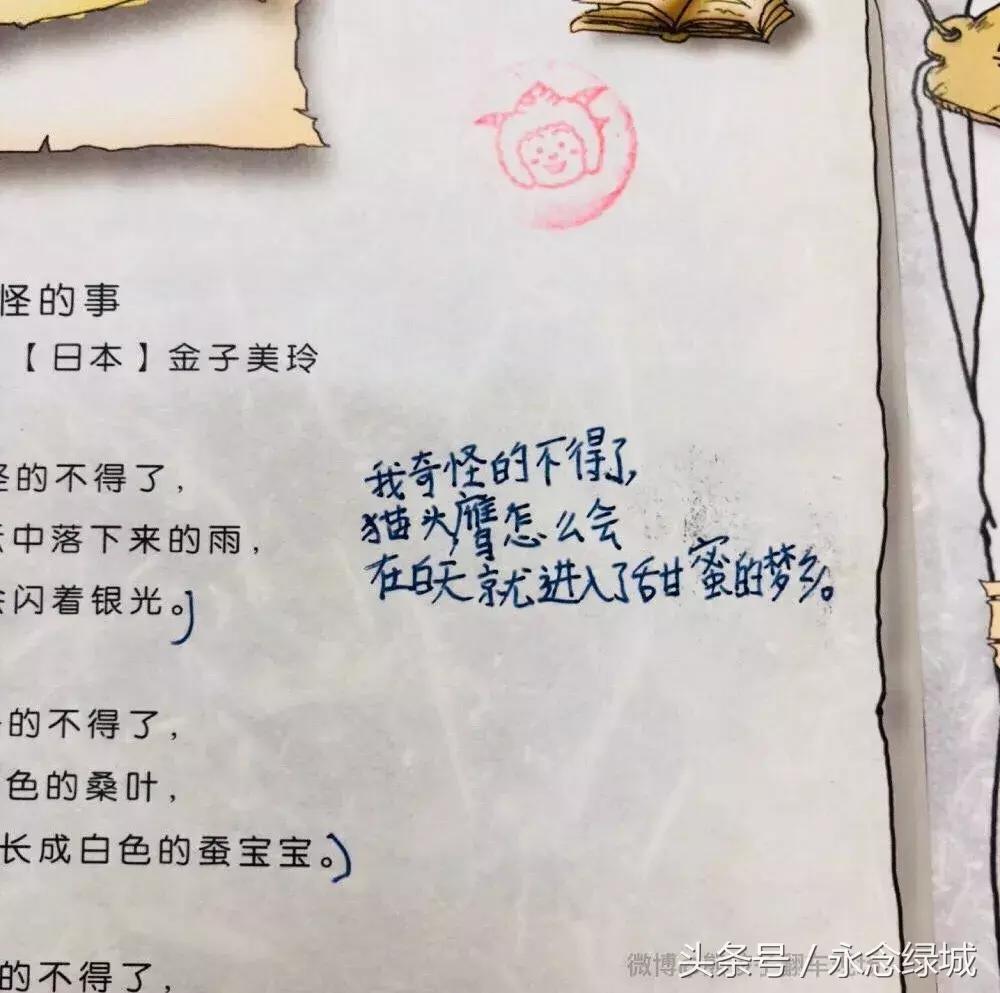 怪的事
【日本】金子美玲
怪的不得了，
中落下来的雨，
闪着银光。
我奇怪的不得了，
猫头鹰怎么会
在白天就进入了甜蜜的梦乡。
的不得了，
色的桑叶，
长成白色的蚕宝宝。
的不得了，
头条号 / 永念绿城
微博